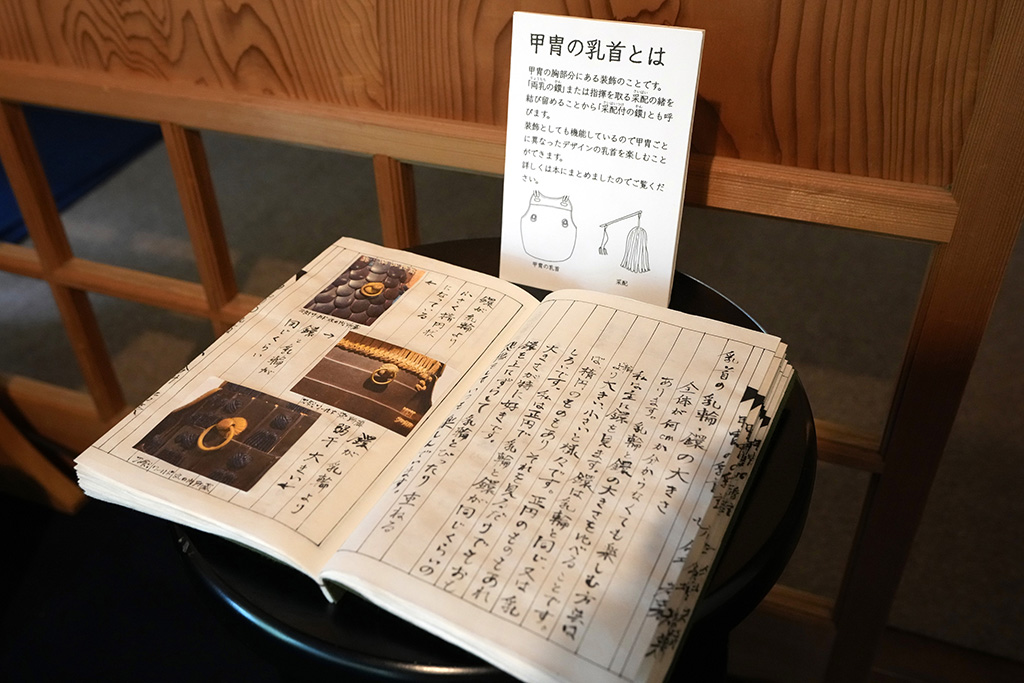 甲冑の乳首とは
甲冑の胸部分にある装飾のことです。
「両乳の鐶」または指揮を取る采配の緒を
結び留めることから「采配付の鐶」とも呼
びます。
装飾としても機能しているので甲冑ごと
に異なったデザインの乳首を楽しむこと
ができます。
詳しくは本にまとめましたのでご覧くだ
さい。
甲冑の乳首
采配
乳首の乳輪、鐶の大きさ
全体が何cmか分からなくても楽しむ方法は
あります。乳輪と鐶の大きさを比べることです。
私は宝、鐶を見ます。鐶は乳輪と同じ、又は乳
輪より大きい、小さいと様々です。正円のものもあれ
ば楕円のものもあり、それを見るだけでもおも
しろいです。私は正円で、乳輪と鐶が同じくらいの
大きさが特に好きです。
鐶を上にずらして、乳輪とぴったり重ねる
鐶が乳輪より
小さく楕円に
なってる
鐶と乳輪が
同じくらい
鐶が乳輪より
若干大きい